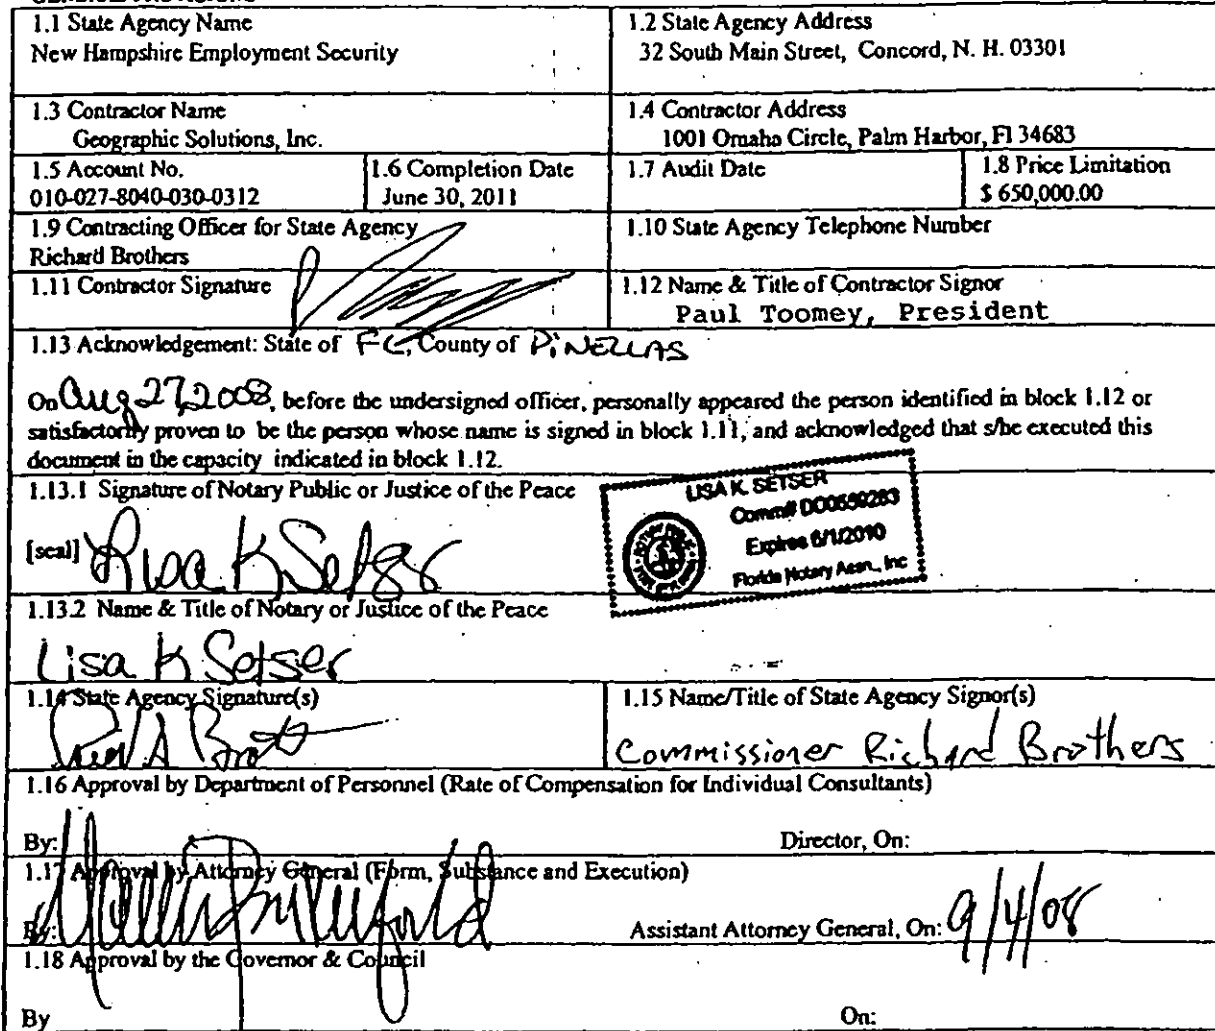 1.1 State Agency Name
New Hampshire Employment Security
1.2 State Agency Address
32 South Main Street, Concord, N. H. 03301
1.3 Contractor Name
Geographic Solutions, Inc.
1.4 Contractor Address
1001 Omaha Circle, Palm Harbor, Fl 34683
1.5 Account No.
010-027-8040-030-0312
1.6 Completion Date
June 30, 2011
1.7 Audit Date
1.8 Price Limitation
$ 650,000.00
1.9 Contracting Officer for State Agency
Richard Brothers
1.10 State Agency Telephone Number
1.11 Contractor Signature
1.12 Name & Title of Contractor Signor
Paul Toomey, President
1.13 Acknowledgement: State of FL, County of PiNELLAS
On Aug 27, 2008, before the undersigned officer, personally appeared the person identified in block 1.12 or
satisfactorily proven to be the person whose name is signed in block 1.11, and acknowledged that s/he executed this
document in the capacity indicated in block 1.12.
1.13.1 Signature of Notary Public or Justice of the Peace
[seal] Lisa K Setser
LISA K. SETSER
Comm# DD0559283
Expires 6/1/2010
Florida Notary Assn., Inc
1.13.2 Name & Title of Notary or Justice of the Peace
Lisa K Setser
1.14 State Agency Signature(s)
1.15 Name/Title of State Agency Signor(s)
Commissioner Richard Brothers
1.16 Approval by Department of Personnel (Rate of Compensation for Individual Consultants)
By:
Director, On:
1.17 Approval by Attorney General (Form, Substance and Execution)
By:
Assistant Attorney General, On: 9/4/08
1.18 Approval by the Governor & Council
By
On: